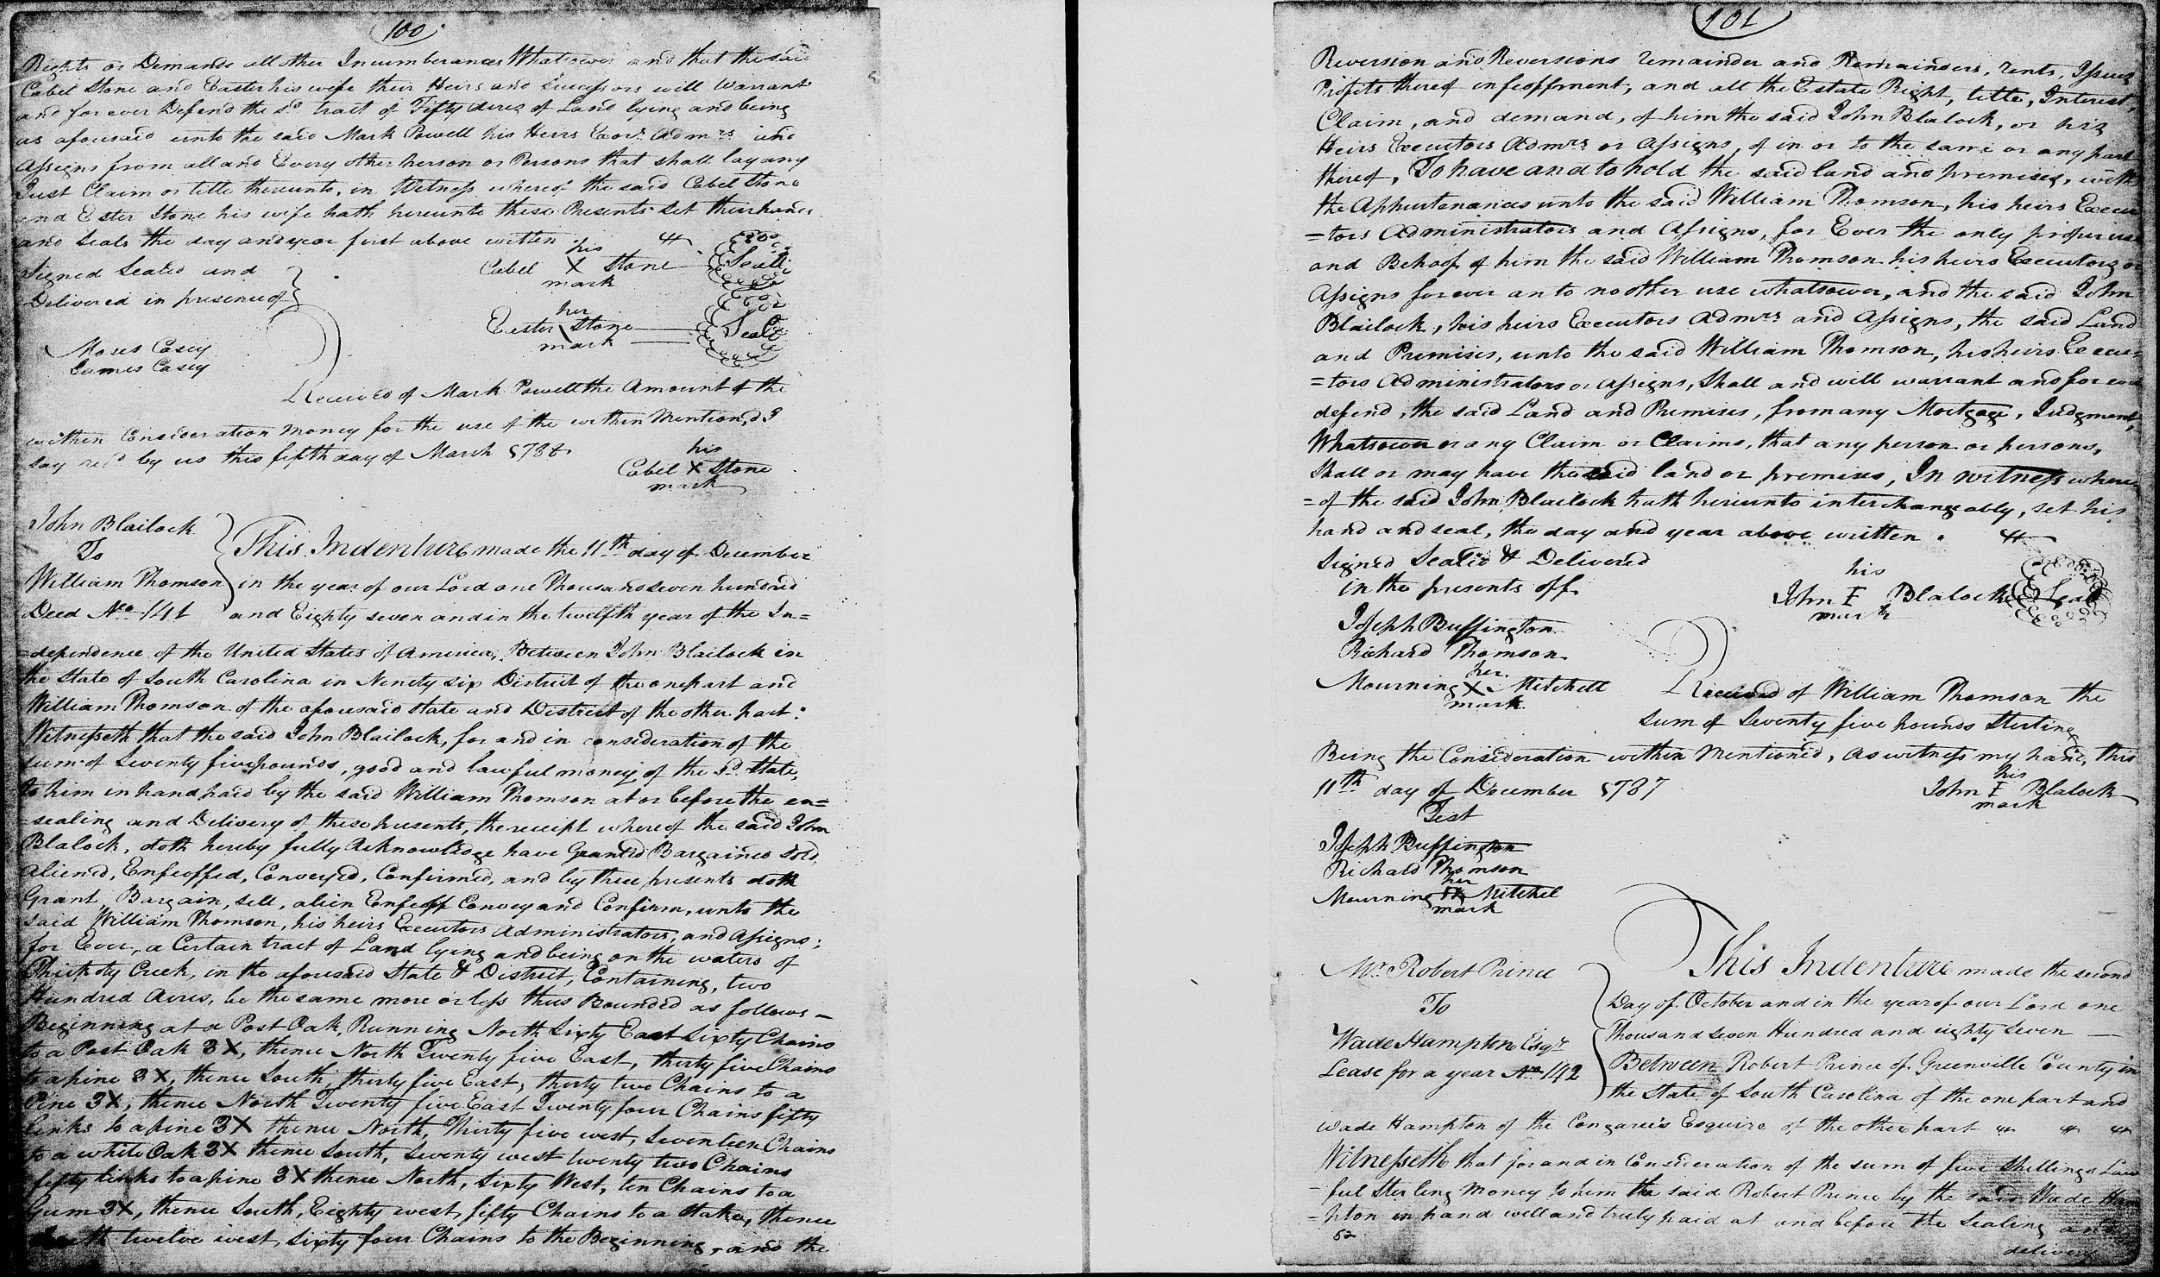 100
Rights or Demands all other Incumberances Whatsoever and that the said
Cabel Stone and Easter his wife their Heirs and Successors will Warrant
and for ever Defend the sd. tract of Fifty Acres of Land lying and being
as aforesaid unto the said Mark Powell his Heirs Exors. Admrs. and
Assigns from all and Every other Person or Persons that shall lay any
Just Claim or title thereunto, in Witness whereof the said Cabel Stone
and Ester Stone his wife hath hereunto these Presents Set their hands
and Seals the day and year first above written.
his
Cabel X Stone Seal
mark
Signed Sealed and
Delivered in presence of
her
Easter Stone Seal
mark
Moses Casey
James Casey
Received of Mark Powell the Amount of the
within Consideration Money for the use of the within Mention,d I
say recd. by us this fifth day of March 1786
his
Cabel X Stone
mark
John Blailock
To
William Thomson
Deed No. 141
This Indenture made the 11th day of December
in the year of our Lord one Thousand seven hundred
and Eighty seven and in the twelfth year of the In=
=dependence of the United States of America, Between John Blailock in
the State of South Carolina in Ninety six District of the one part and
William Thomson of the aforesaid state and District of the other part:
Witnesseth that the said John Blailock, for and in consideration of the
sum of Seventy five pounds, good and lawful money of the sd. State,
to him in hand paid by the said William Thomson at or before the en=
=sealing and Delivery of these presents, the receipt whereof the said John
Blalock, doth hereby fully Acknowledge have Granted Bargained Sold,
aliened, Enfeoffed, Convey'd, Confirmed, and by these presents doth
Grant, Bargain, sell, alien Enfeoff Convey and Confirm, unto the
said William Thomson, his heirs Executors Administrators, and Assigns;
for Ever, a Certain tract of Land lying and being on the waters of
Thicketty Creek, in the aforesaid State & District, Containing, two
Hundred Acres, be the same more or less thus Bounded as follows -
Beginning at a Post Oak, Running North Sixty East Sixty Chains
to a Post Oak 3X, thence North Twenty five East, thirty five Chains
to a pine 3X, thence South, thirty five East, thirty two Chains to a
Pine 3X, thence North Twenty five East Twenty four Chains fifty
links to a pine 3X thence North, Thirty five west, Seventeen Chains
to a white Oak 3X thence South, Seventy west twenty two Chains
fifty links to a pine 3X thence North, Sixty West, ten Chains to a
Gum 3X, thence South, Eighty west, fifty Chains to a Stake, Thence
twelve west, sixty four Chains to the Beginning, and the
101
Reversion and Reversions remainder and Remainders, rents, Issues
Profits thereof infeoffment, and all the Estate Right, title, Interest,
Claim, and demand, of him the said John Blalock, or his
Heirs Executors Admrs. or Assigns, of in or to the same or any part
thereof, To have and to hold the said land and premises, with
the Appurtenances unto the said William Thomson, his heirs Execu
=tors Administrators and Assigns, for Ever the only proper use
and Behoof of him the said William Thomson his heirs Executors or
Assigns for ever an to no other use whatsoever, and the said John
Blailock, his heirs Executors Admrs. and Assigns, the said Land
and Premises, unto the said William Thomson, his heirs Execu=
=tors Administrators or Assigns, shall and will warrant and for ever
defend, the said Land and Premises, from any Mortgage, Judgment,
Whatsoever or any Claim or Claims, that any person or persons,
shall or may have the said land or premises, In witness where
=of the said John Blailock hath hereunto interchangeably, set his
hand and seal, the day and year above written.
Signed Sealed & Delivered
in the presents off
his
John I Blalock Seal
mark
Joseph Buffington
Richard Thomson
her
Mourning X Mitchell
mark
Received of William Thomson the
sum of Seventy five pounds Sterling
Being the Consideration within Mentioned, as witness my hand, this
11th day of December 1787
his
John I Blalock
mark
Test
Joseph Buffington
Richard Thomson
her
Mourning X Mitchel
mark
Mr. Robert Prince
To
Wade Hampton Esqr.
Lease for a year No. 142
This Indenture made the second
Day of October and in the year of our Lord one
Thousand Seven Hundred and eighty Seven
Between Robert Prince of Greenville County in
the State of South Carolina of the one part and
Wade Hampton of the Congarees Esquire of the other part
Witnesseth that for and in Consideration of the sum of five Shillings Law
=ful Sterling Money to him the said Robert Prince by the said Wade Ham
=pton in hand well and truly paid at and before the Sealing and
52
delivery